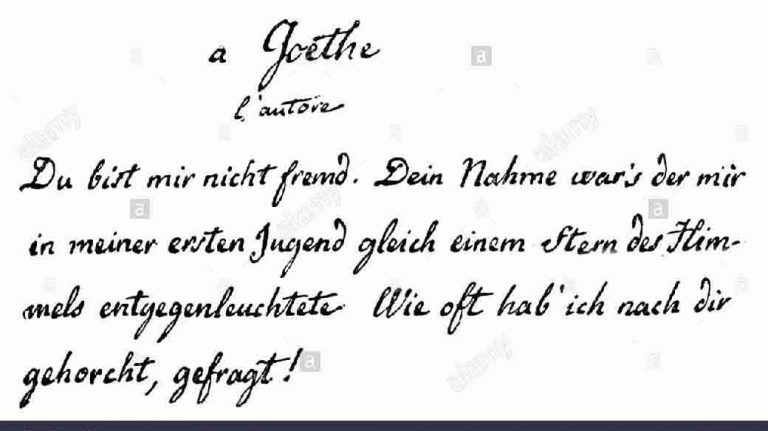 a Goethe
l'autore
Du bist mir nicht fremd. Dein Nahme war's der mir
in meiner ersten Jugend gleich einem Stern des Him-
mels entgegenleuchtete Wie oft hab' ich nach dir
gehorcht, gefragt!